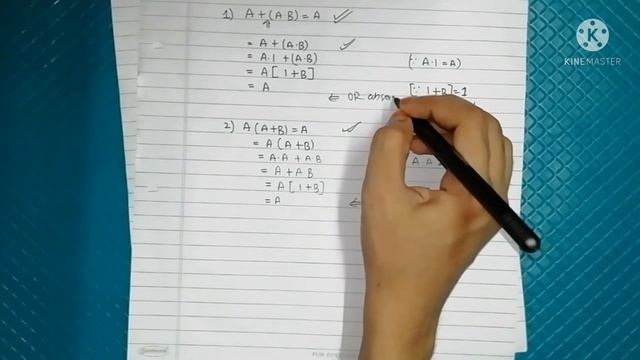 1) A + (A B) = A
= A + (A·B)
= A·1 + (A·B) (∵ A·1 = A)
= A [ 1+B ] [∵ 1+B]=1
= A
⇐ OR
2) A (A+B) = A
= A (A+B)
= A·A + A·B
= A + A B
= A [ 1+B ]
= A
K
KINEMASTER